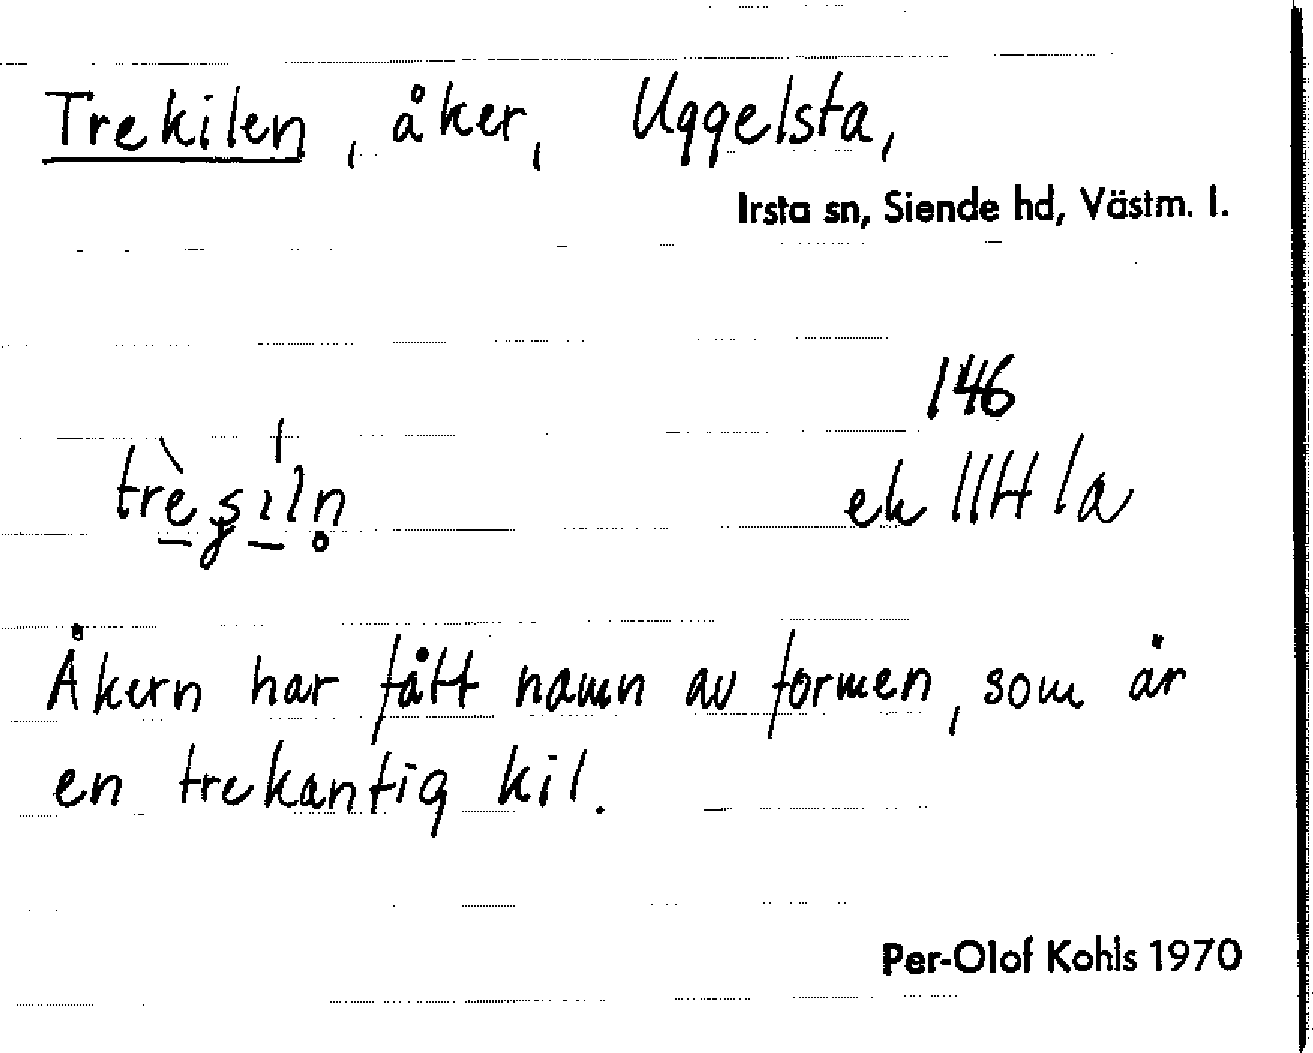 Trekilen, åker, Uggelsta,
Irsta sn, Siende hd, Västm. l.
146
ek 11H1a
Åkern har fått namn av formen, som är
en trekantig kil.
Per-Olof Kohls 1970